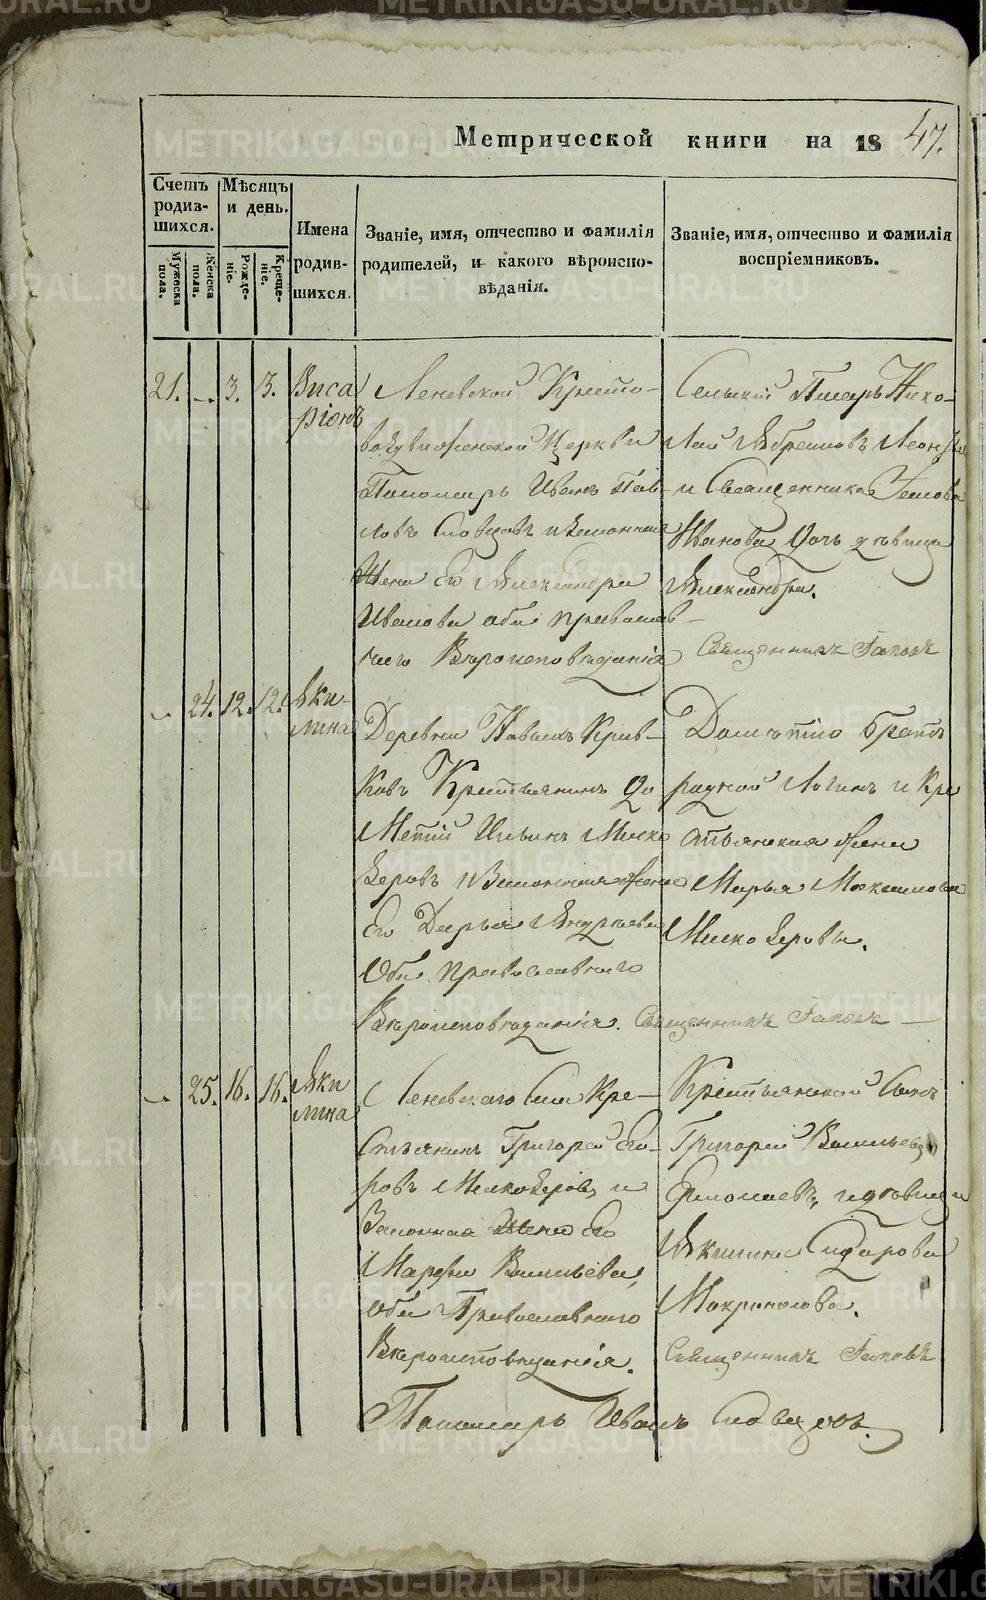 Метрической книги на 1847.
Счетъ родив-шихся.
Мужеска пола.
Женска пола.
Мѣсяцъ и день.
Рожде-ніе.
Креще-ніе.
Имена родив-шихся.
Званіе, имя, отчество и фамилія
родителей, и какого вѣроиспо-
вѣданія.
Званіе, имя, отчество и фамилія
воспріемниковъ.
21. 3. 3. Виса
ріонъ
Леневской Кресто-
воздвиженской Церкви
Пономарь Иванъ Пав-
ловъ и законная
Жена Его Александра
Иванова оба православ-
наго Вѣроисповѣданія
Сельскій Писарь Нико-
лай
и Священника Іакова
Иванова Дочь дѣвица
Александра.
Священникъ Іаковъ
24. 12. 12. Аки-
лина
Деревни Крив-
ковъ Крестьянинъ До
метій Ильинъ Миско
зеровъ и Законная жена
Его Дарья Андреева
Оба православнаго
Вѣроисповѣданія.
братъ
родной Логинъ и Кре
стьянская жена
Марья Максимова
Мискозерова.
Священникъ Іаковъ
25. 16. 16. Аки
лина
Леневскаго Села Кре-
стьянинъ Григорей Его-
ровъ Мискозеровъ и
Законная Жена Его
Марфа Васильева,
оба Православнаго
Вѣроисповѣданія.
Крестьянской Сынъ
Григорей Васильевъ
Ермолаевъ, и дѣвица
Акилина Сидорова
Мокроносова.
Священникъ Іаковъ
Пономарь Иванъ
METRIKI.GASO-URAL.RU